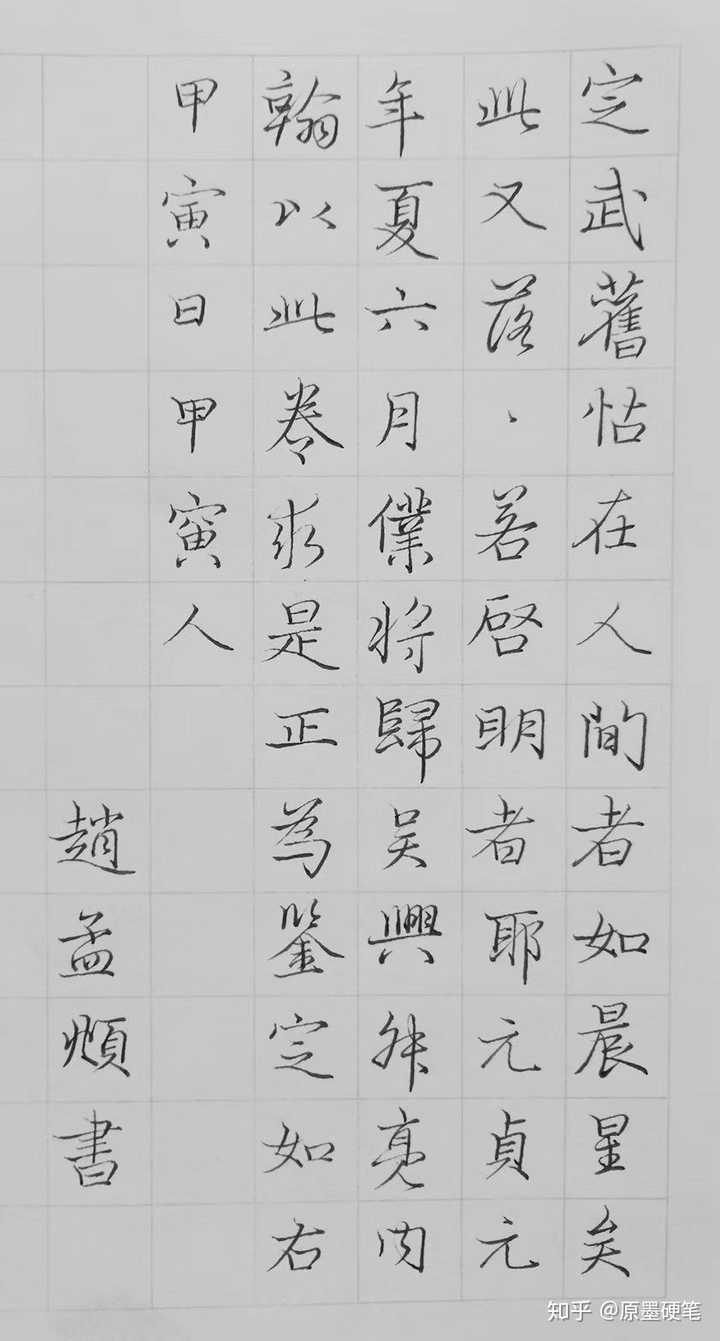 定武舊帖在人間者如晨星矣
此又落·若啓明者耶元貞元
年夏六月僕將歸吴興叔亮内
翰以此卷求是正為鑒定如右
甲寅日甲寅人
趙孟頫書
知乎 @原墨硬笔